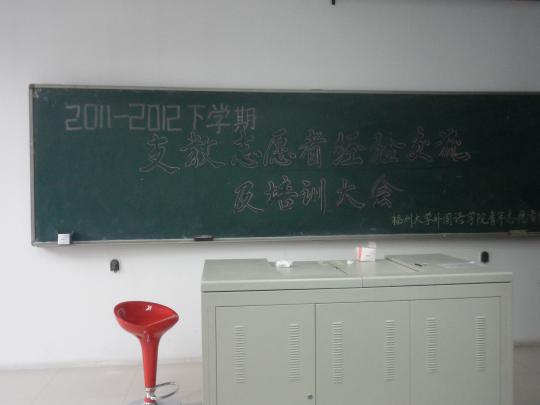 2011-2012下学期
支教志愿者经验交流
及培训大会
福州大学外国语学院青年志愿者